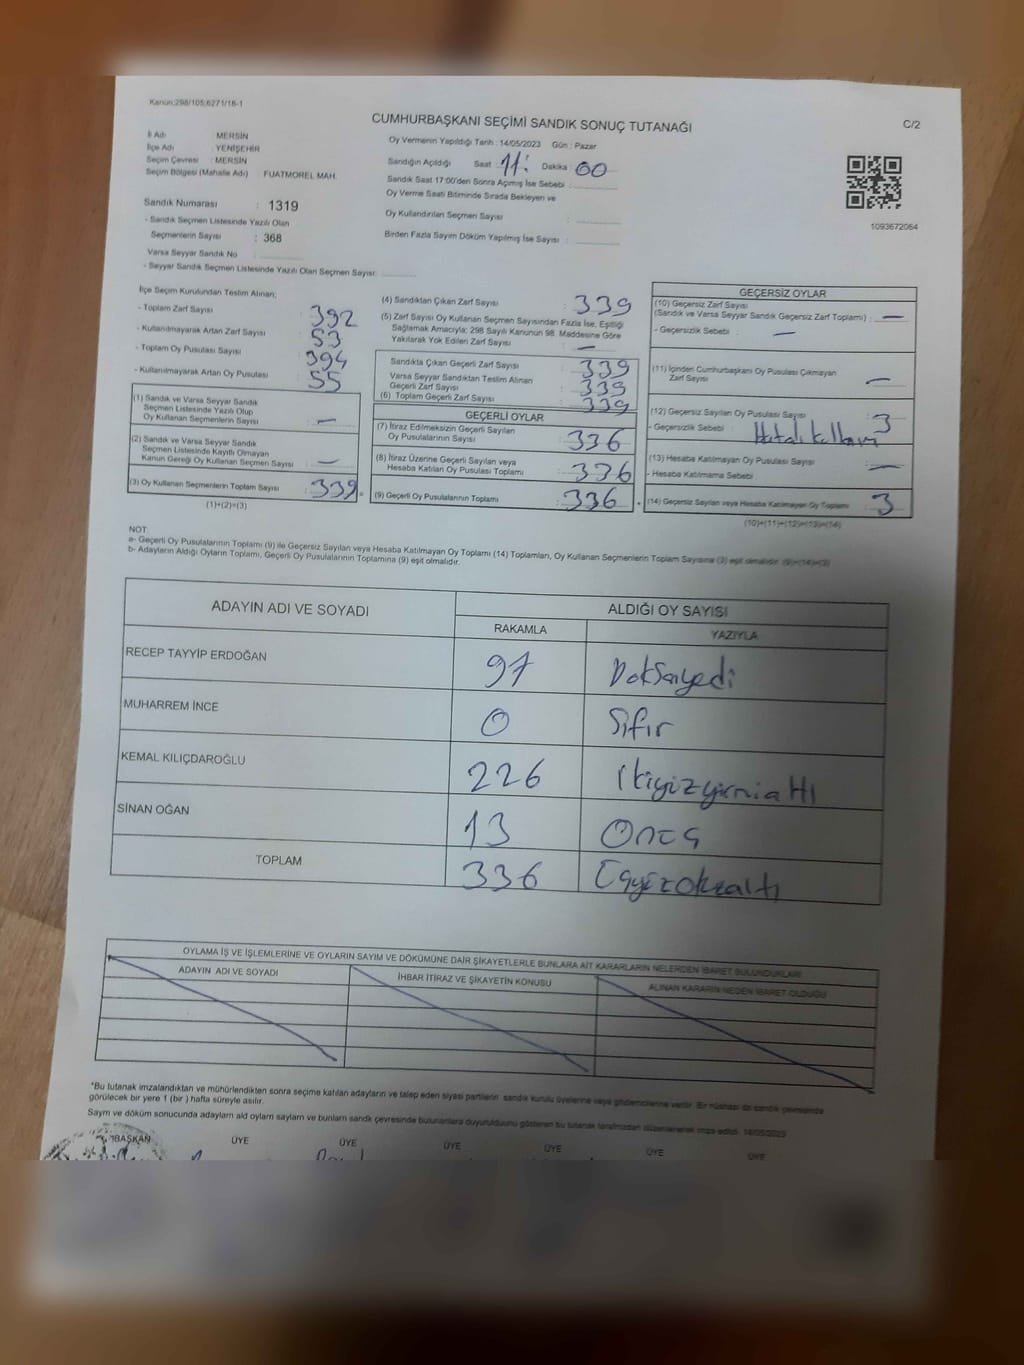 Kanun:298/105;6271/16-1
CUMHURBAŞKANI SEÇİMİ SANDIK SONUÇ TUTANAĞI
C/2
İl Adı : MERSİN
İlçe Adı : YENİŞEHİR
Seçim Çevresi : MERSİN
Seçim Bölgesi (Mahalle Adı) FUATMOREL MAH.
Sandık Numarası : 1319
- Sandık Seçmen Listesinde Yazılı Olan
Seçmenlerin Sayısı : 368
Varsa Seyyar Sandık No :
- Seyyar Sandık Seçmen Listesinde Yazılı Olan Seçmen Sayısı:
Oy Vermenin Yapıldığı Tarih : 14/05/2023 Gün : Pazar
Sandığın Açıldığı Saat 17: Dakika : 00
Sandık Saat 17:00'den Sonra Açılmış İse Sebebi :
Oy Verme Saati Bitiminde Sırada Bekleyen ve
Oy Kullandırılan Seçmen Sayısı :
Birden Fazla Sayım Döküm Yapılmış İse Sayısı :
1093672064
İlçe Seçim Kurulundan Teslim Alınan;
- Toplam Zarf Sayısı : 392
- Kullanılmayarak Artan Zarf Sayısı : 53
- Toplam Oy Pusulası Sayısı : 394
- Kullanılmayarak Artan Oy Pusulası : 55
(1) Sandık ve Varsa Seyyar Sandık
Seçmen Listesinde Yazılı Olup
Oy Kullanan Seçmenlerin Sayısı : —
(2) Sandık ve Varsa Seyyar Sandık
Seçmen Listesinde Kayıtlı Olmayan
Kanun Gereği Oy Kullanan Seçmen Sayısı : —
(3) Oy Kullanan Seçmenlerin Toplam Sayısı : 339
(1)+(2)=(3)
(4) Sandıktan Çıkan Zarf Sayısı : 339
(5) Zarf Sayısı Oy Kullanan Seçmen Sayısından Fazla İse, Eşitliği
Sağlamak Amacıyla; 298 Sayılı Kanunun 98. Maddesine Göre
Yakılarak Yok Edilen Zarf Sayısı : —
Sandıkta Çıkan Geçerli Zarf Sayısı : 339
Varsa Seyyar Sandıktan Teslim Alınan
Geçerli Zarf Sayısı : 339
(6) Toplam Geçerli Zarf Sayısı : 339
GEÇERLİ OYLAR
(7) İtiraz Edilmeksizin Geçerli Sayılan
Oy Pusulalarının Sayısı : 336
(8) İtiraz Üzerine Geçerli Sayılan veya
Hesaba Katılan Oy Pusulası Toplamı : 336
(9) Geçerli Oy Pusulalarının Toplamı : 336
GEÇERSİZ OYLAR
(10) Geçersiz Zarf Sayısı
(Sandık ve Varsa Seyyar Sandık Geçersiz Zarf Toplamı) : —
- Geçersizlik Sebebi : —
(11) İçinden Cumhurbaşkanı Oy Pusulası Çıkmayan
Zarf Sayısı : —
(12) Geçersiz Sayılan Oy Pusulası Sayısı : 3
- Geçersizlik Sebebi : Hatalı kullanım
(13) Hesaba Katılmayan Oy Pusulası Sayısı : —
- Hesaba Katılmama Sebebi
(14) Geçersiz Sayılan veya Hesaba Katılmayan Oy Toplamı : 3
(10)+(11)+(12)+(13)=(14)
NOT:
a- Geçerli Oy Pusulalarının Toplamı (9) ile Geçersiz Sayılan veya Hesaba Katılmayan Oy Toplamı (14) Toplamları, Oy Kullanan Seçmenlerin Toplam Sayısına (3) eşit olmalıdır. (9)+(14)=(3)
b- Adayların Aldığı Oyların Toplamı, Geçerli Oy Pusulalarının Toplamına (9) eşit olmalıdır.
ADAYIN ADI VE SOYADI
ALDIĞI OY SAYISI
RAKAMLA YAZIYLA
RECEP TAYYİP ERDOĞAN 97 Doksanyedi
MUHARREM İNCE 0 Sıfır
KEMAL KILIÇDAROĞLU 226 İkiyüzyirmialtı
SİNAN OĞAN 13 Onüç
TOPLAM 336 Üçyüzotuzaltı
OYLAMA İŞ VE İŞLEMLERİNE VE OYLARIN SAYIM VE DÖKÜMÜNE DAİR ŞİKAYETLERLE BUNLARA AİT KARARLARIN NELERDEN İBARET BULUNDUKLARI
ADAYIN ADI VE SOYADI İHBAR İTİRAZ VE ŞİKAYETİN KONUSU ALINAN KARARIN NEDEN İBARET OLDUĞU
*Bu tutanak imzalandıktan ve mühürlendikten sonra seçime katılan adayların ve talep eden siyasi partilerin sandık kurulu üyelerine veya gözlemcilerine verilir. Bir nüshası da sandık çevresinde
görülecek bir yere 1 (bir ) hafta süreyle asılır.
Sayım ve döküm sonucunda adayların ald oyların sayıları ve bunların sandık çevresinde bulunanlara duyurulduğunu gösteren bu tutanak tarafımızdan düzenlenerek imza edildi. 14/05/2023
BAŞKAN ÜYE ÜYE ÜYE ÜYE ÜYE ÜYE